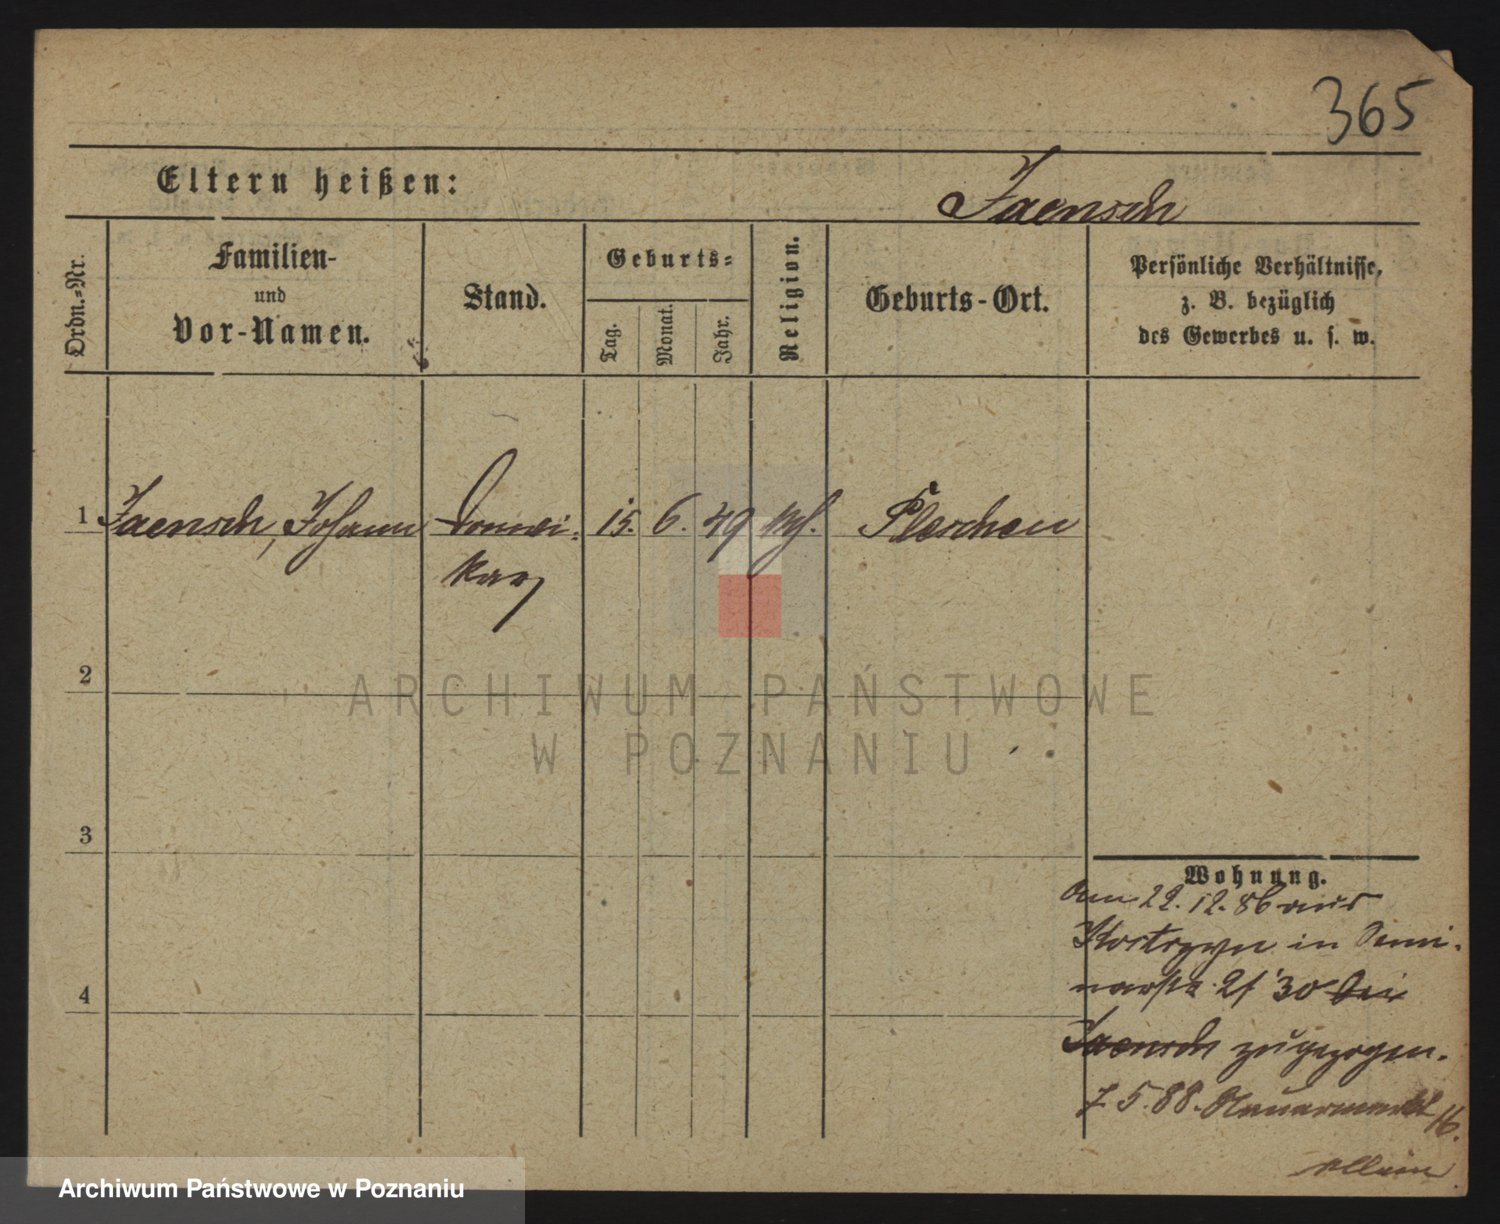 365
Eltern heißen:
Jaensch
Ordn.=Nr.
Familien-
und
Vor-Namen.
Stand.
Geburts=
Tag.
Monat.
Jahr.
Religion.
Geburts-Ort.
Persönliche Verhältnisse,
z. B. bezüglich
des Gewerbes u. s. w.
1 Jaensch, Johann 15. 6. 49 Pleschen
2
3
4
Wohnung.
Am 22. 12. 86 aus
Kostrzyn in Semi-
narstr. 2/ 30 bei
Jaensch zugezogen.
7. 5. 88. Neuermarkt 16.
allein
ARCHIWUM PAŃSTWOWE
W POZNANIU
Archiwum Państwowe w Poznaniu